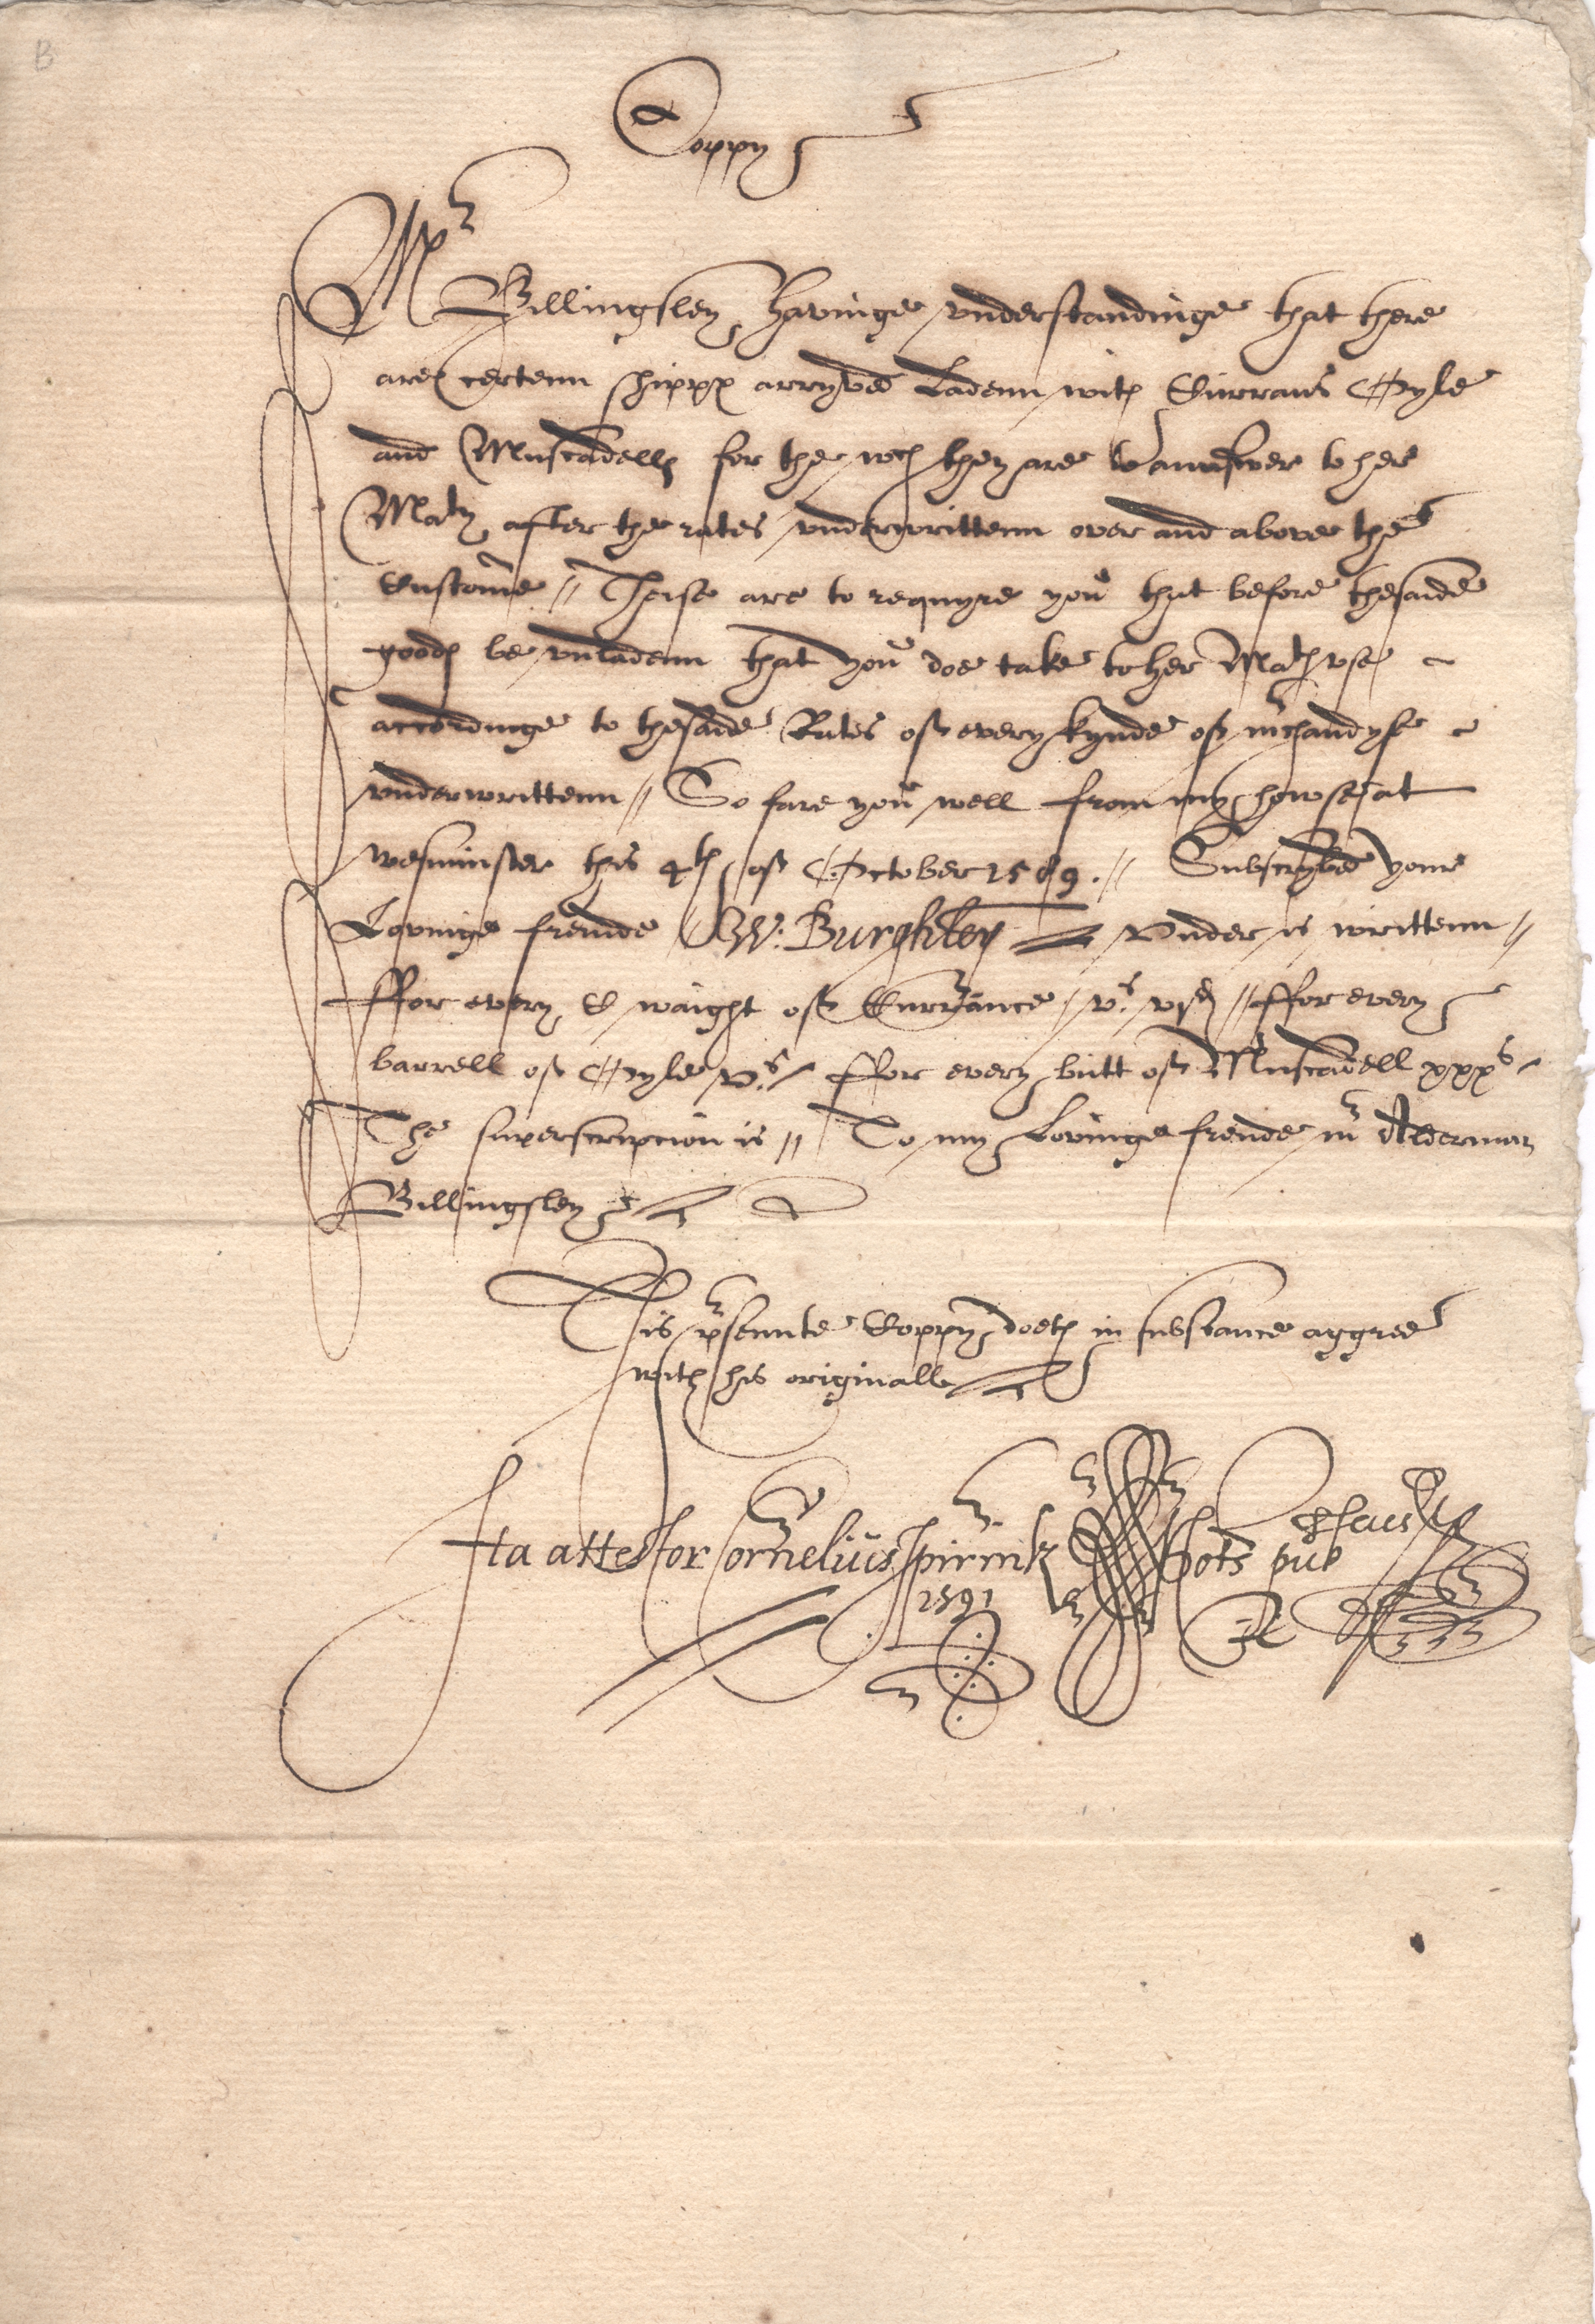 B
Coppy
Mr
Billingsley Havinge vnderstandinge that there
are certenn shippes arryved Ladenn with Currans Oyle
and Muscadells for the wch they are to aunswer to her
Maty after the rates vnderwrittenn over and above the
Custome // Theise are to requyre you that before thesaide
goodes be vnladenn that you doe take to her Mats vse
accordinge to thesaide Rates of every kynde of mrchandyse
vnderwrittenn // So fare you well from my howse at
Wesminster this 4th of October 1589. // Subscrybed your
Lovinge frende W: Burghley Vnder is writtenn //
ffor every C waight of Currance vs. vjd // ffor every
barrell of Oyle vs. / ffor every butt of Muscadell xxxs
The superscripcion is // To my Lovinge frende mr Alderman
Billingsley
This prsennte Coppy doeth in substance aggree
with his originall
Ita attestor Cornelius Spirinck Nots pub
1591